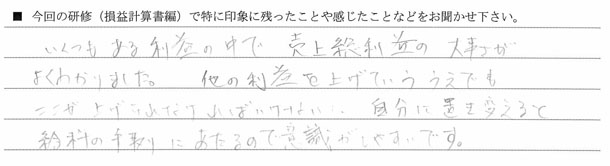 ■ 今回の研修（損益計算書編）で特に印象に残ったことや感じたことなどをお聞かせ下さい。
いくつもある利益の中で 売上総利益の大事さが
よくわかりました。 他の利益を上げていううえでも
ここが上げられなければいけない、 自分に置き変えると
給料の手取りにあたるので意識がしやすいです。